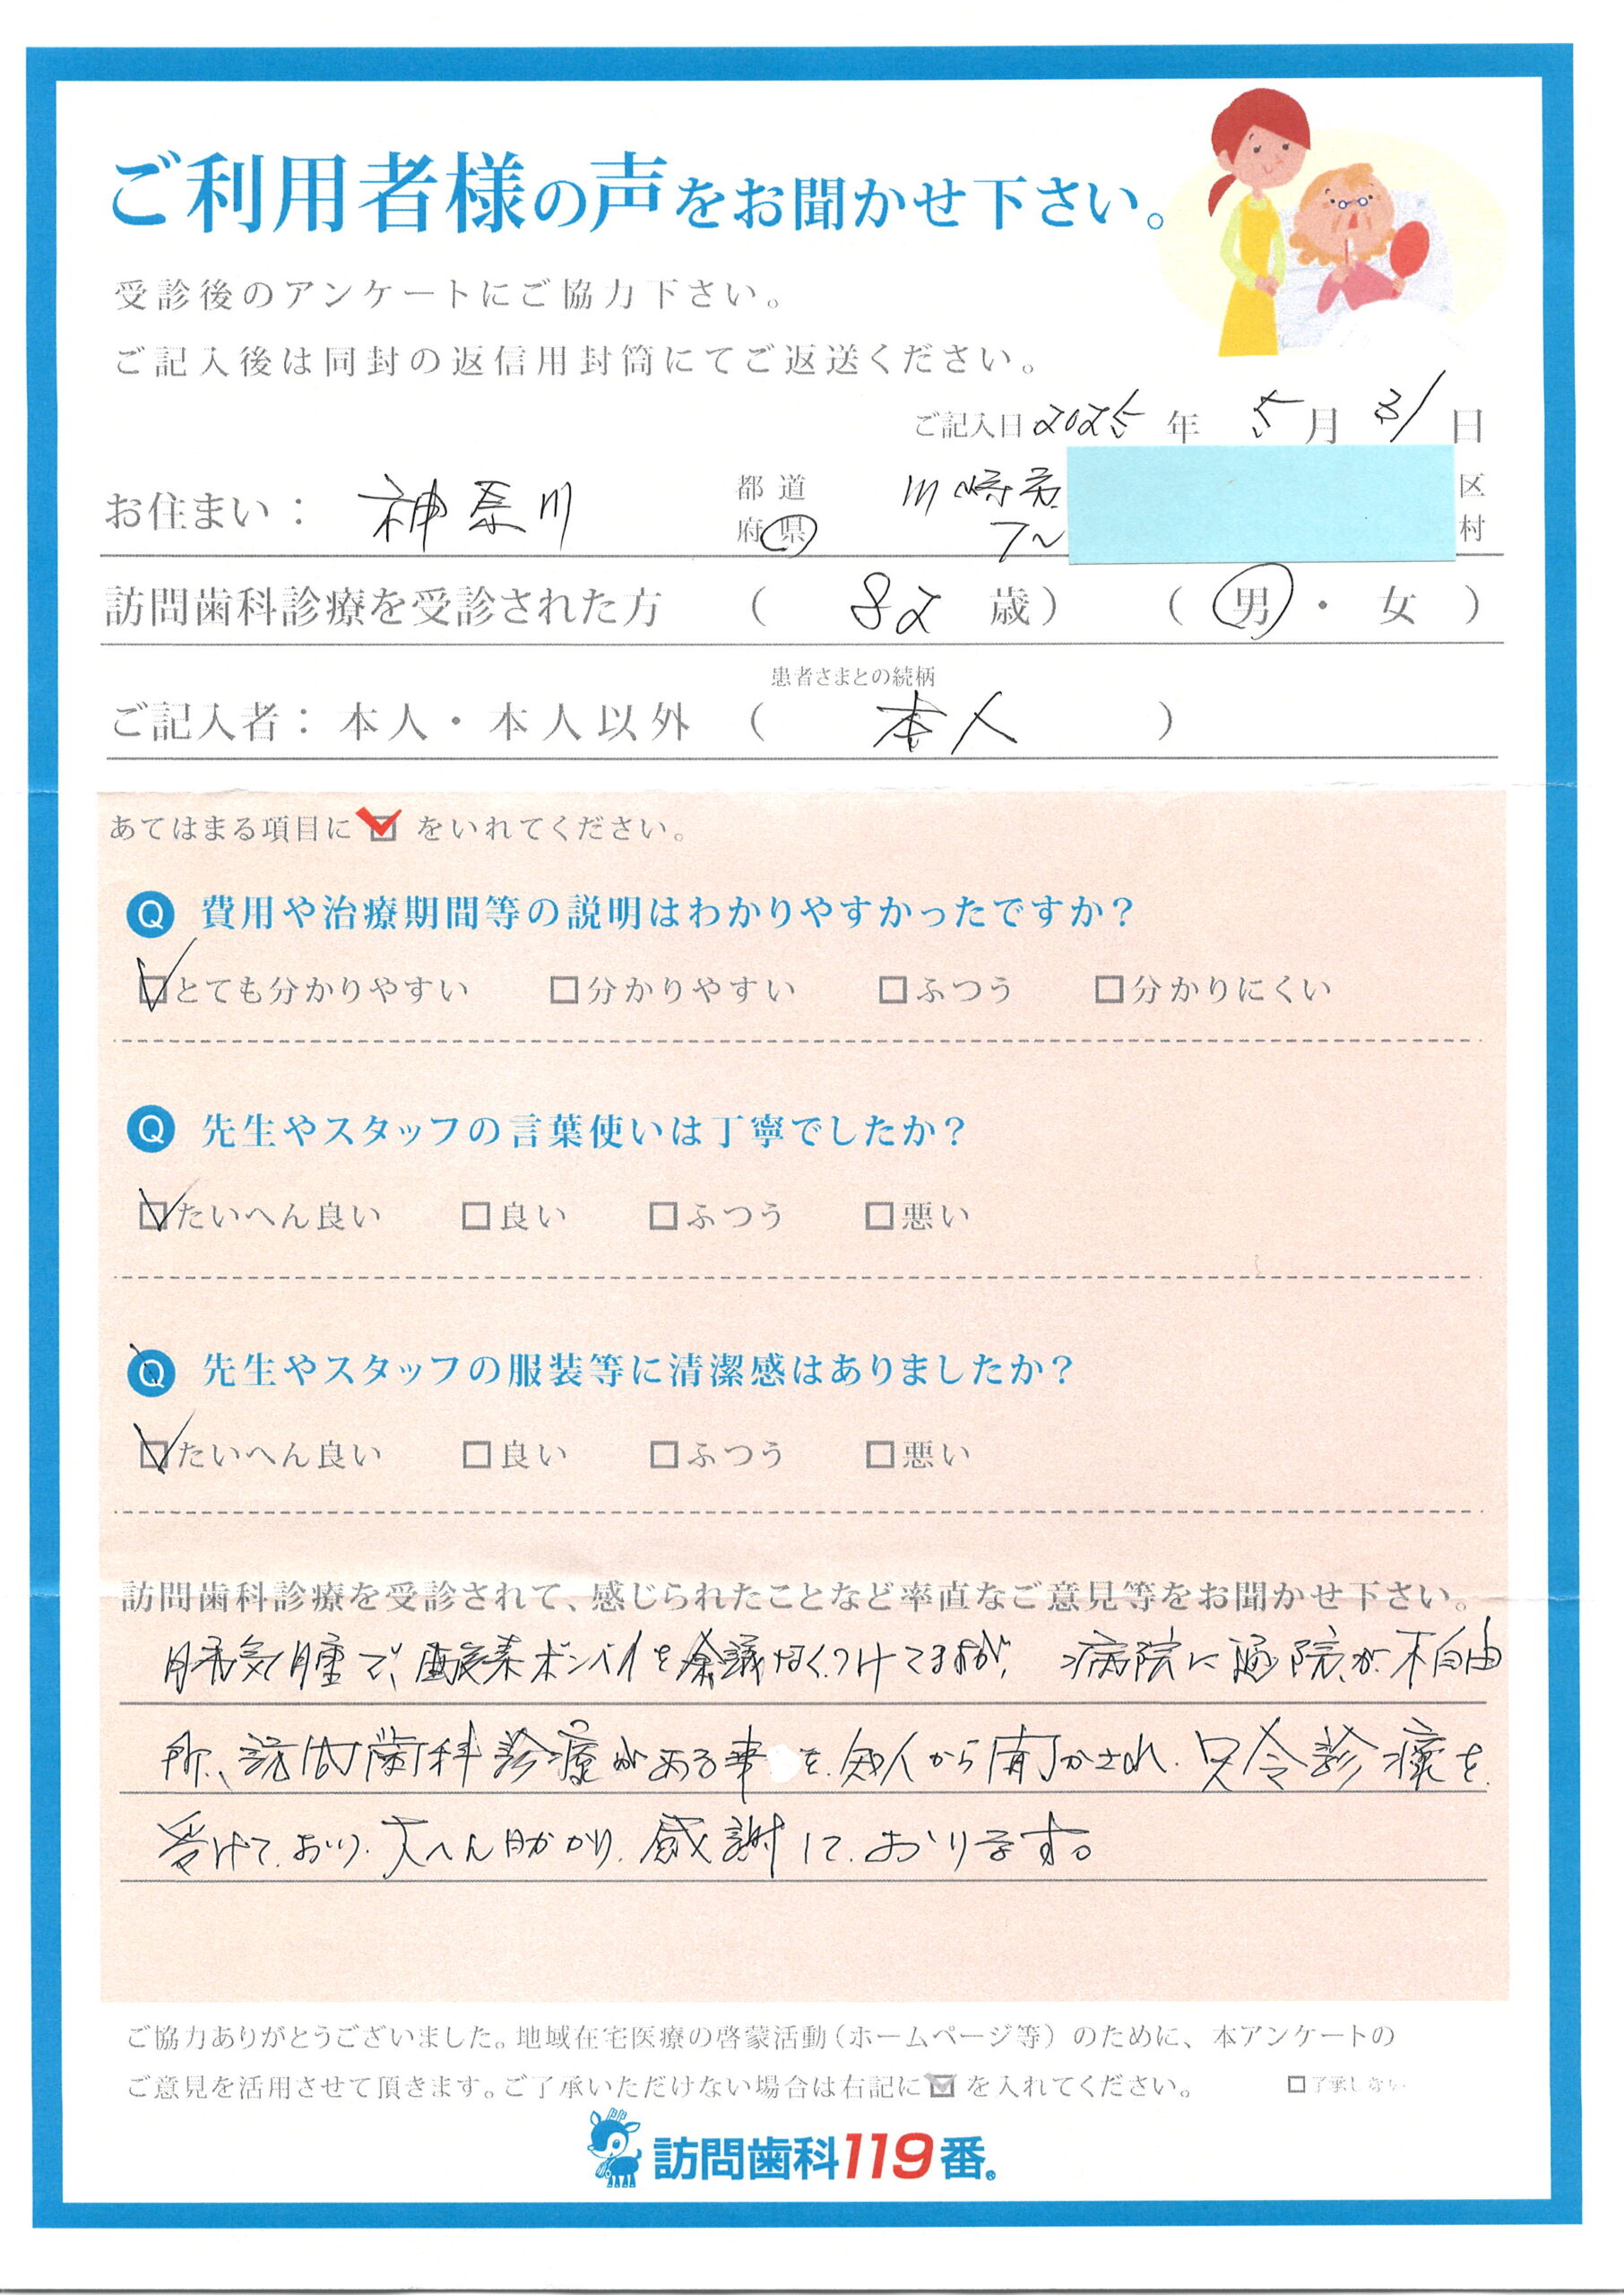 ご利用者様の声をお聞かせ下さい。
受診後のアンケートにご協力下さい。
ご記入後は同封の返信用封筒にてご返送ください。
ご記入日 2025 年 5 月 31 日
お住まい： 神奈川 都道府県 川崎市 区
村
訪問歯科診療を受診された方 （ 82 歳） （ 男 ・ 女 ）
患者さまとの続柄
ご記入者：本人・本人以外 （ 本人 ）
あてはまる項目に をいれてください。
Q 費用や治療期間等の説明はわかりやすかったですか？
とても分かりやすい 分かりやすい ふつう 分かりにくい
Q 先生やスタッフの言葉使いは丁寧でしたか？
たいへん良い 良い ふつう 悪い
Q 先生やスタッフの服装等に清潔感はありましたか？
たいへん良い 良い ふつう 悪い
訪問歯科診療を受診されて、感じられたことなど率直なご意見等をお聞かせ下さい。
肺気腫で、酸素ボンベイを余議なくつけてますが、病院に通院が不自由
所、訪問歯科診療がある事を、知人から聞かされ、只今診療を
受けており、大へん助かり、感謝しております。
ご協力ありがとうございました。地域在宅医療の啓蒙活動（ホームページ等）のために、本アンケートの
ご意見を活用させて頂きます。ご了承いただけない場合は右記に を入れてください。 了承しない
訪問歯科119番